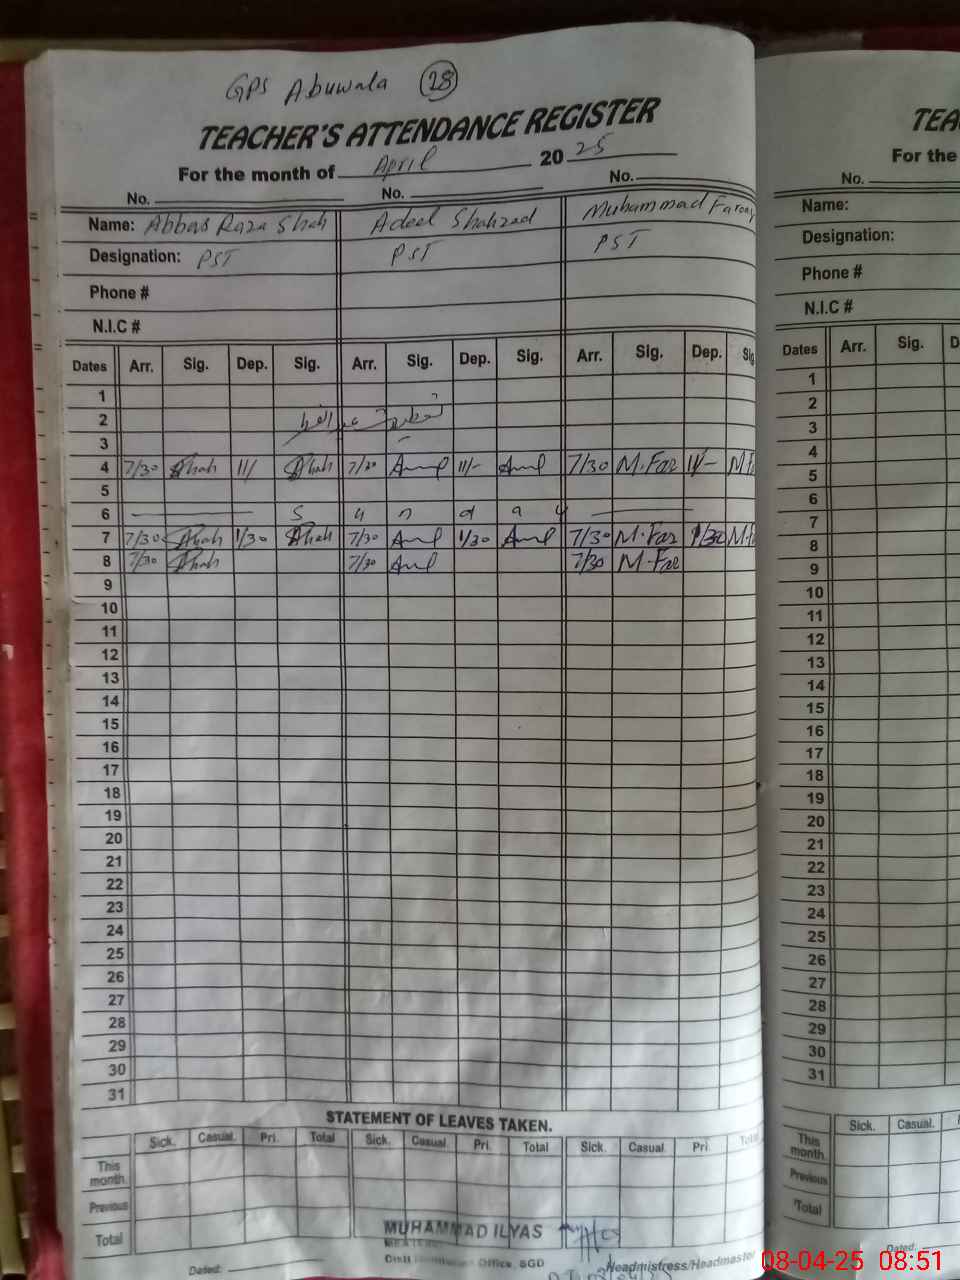 GPS Abuwala 28
TEACHER'S ATTENDANCE REGISTER
For the month of April 2025
No. No. No.
Name: Abbas Raza Shah Adeel Shahzad Muhammad Farooq
Designation: PST PST PST
Phone #
N.I.C #
Dates Arr. Sig. Dep. Sig. Arr. Sig. Dep. Sig. Arr. Sig. Dep. Sig
1
2
3
4 7/30 Shah 11/ Shah 7/30 11/- 7/30 M.Far 11/- M.Fa
5
6 S u n d a y
7 7/30 Shah 1/30 Shah 7/30 1/30 7/30 M.Far 1/30 M.F
8 7/30 Shah 7/30 7/30 M.Far
9
10
11
12
13
14
15
16
17
18
19
20
21
22
23
24
25
26
27
28
29
30
31
STATEMENT OF LEAVES TAKEN.
Sick. Casual. Pri. Total Sick. Casual. Pri. Total Sick. Casual. Pri. Total
This month.
Previous
Total
MUHAMMAD ILYAS
Office, SGD
Dated: Headmistress/Headmaster
TEA
For the
No.
Name:
Designation:
Phone #
N.I.C #
Dates Arr. Sig. D
1
2
3
4
5
6
7
8
9
10
11
12
13
14
15
16
17
18
19
20
21
22
23
24
25
26
27
28
29
30
31
Sick. Casual.
This month.
Previous
Total
Dated:
08-04-25 08:51